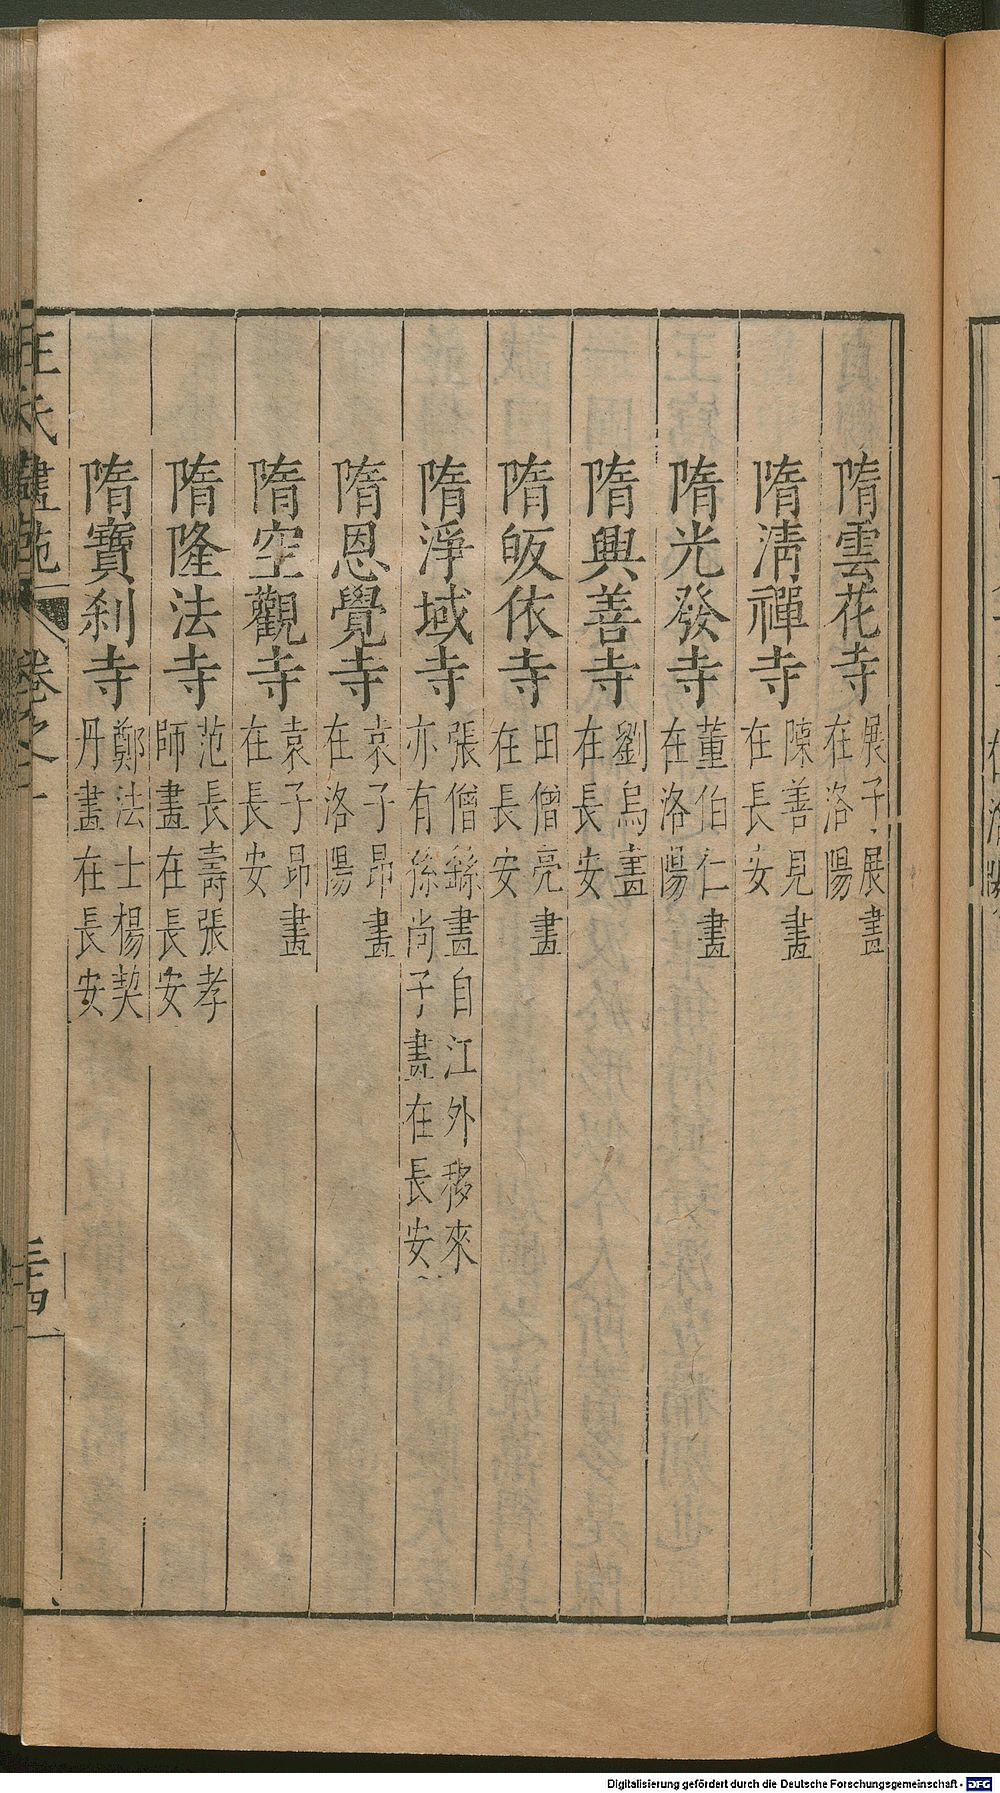 隋雲花寺 展子䖍展畫在洛陽
隋淸禪寺 陳善見畫在長安
隋光發寺 董伯仁畫在洛陽
隋興善寺 劉烏畫在長安
隋皈依寺 田僧亮畫在長安
隋淨域寺 張僧繇畫自江外移來亦有孫尚子畫在長安
隋恩覺寺 袁子昂畫在洛陽
隋空觀寺 袁子昂畫在長安
隋隆法寺 范長壽張孝師畫在長安
隋寶刹寺 鄭法士楊契丹畫在長安
王氏畫苑 卷之一
Digitalisierung gefördert durch die Deutsche Forschungsgemeinschaft - DFG